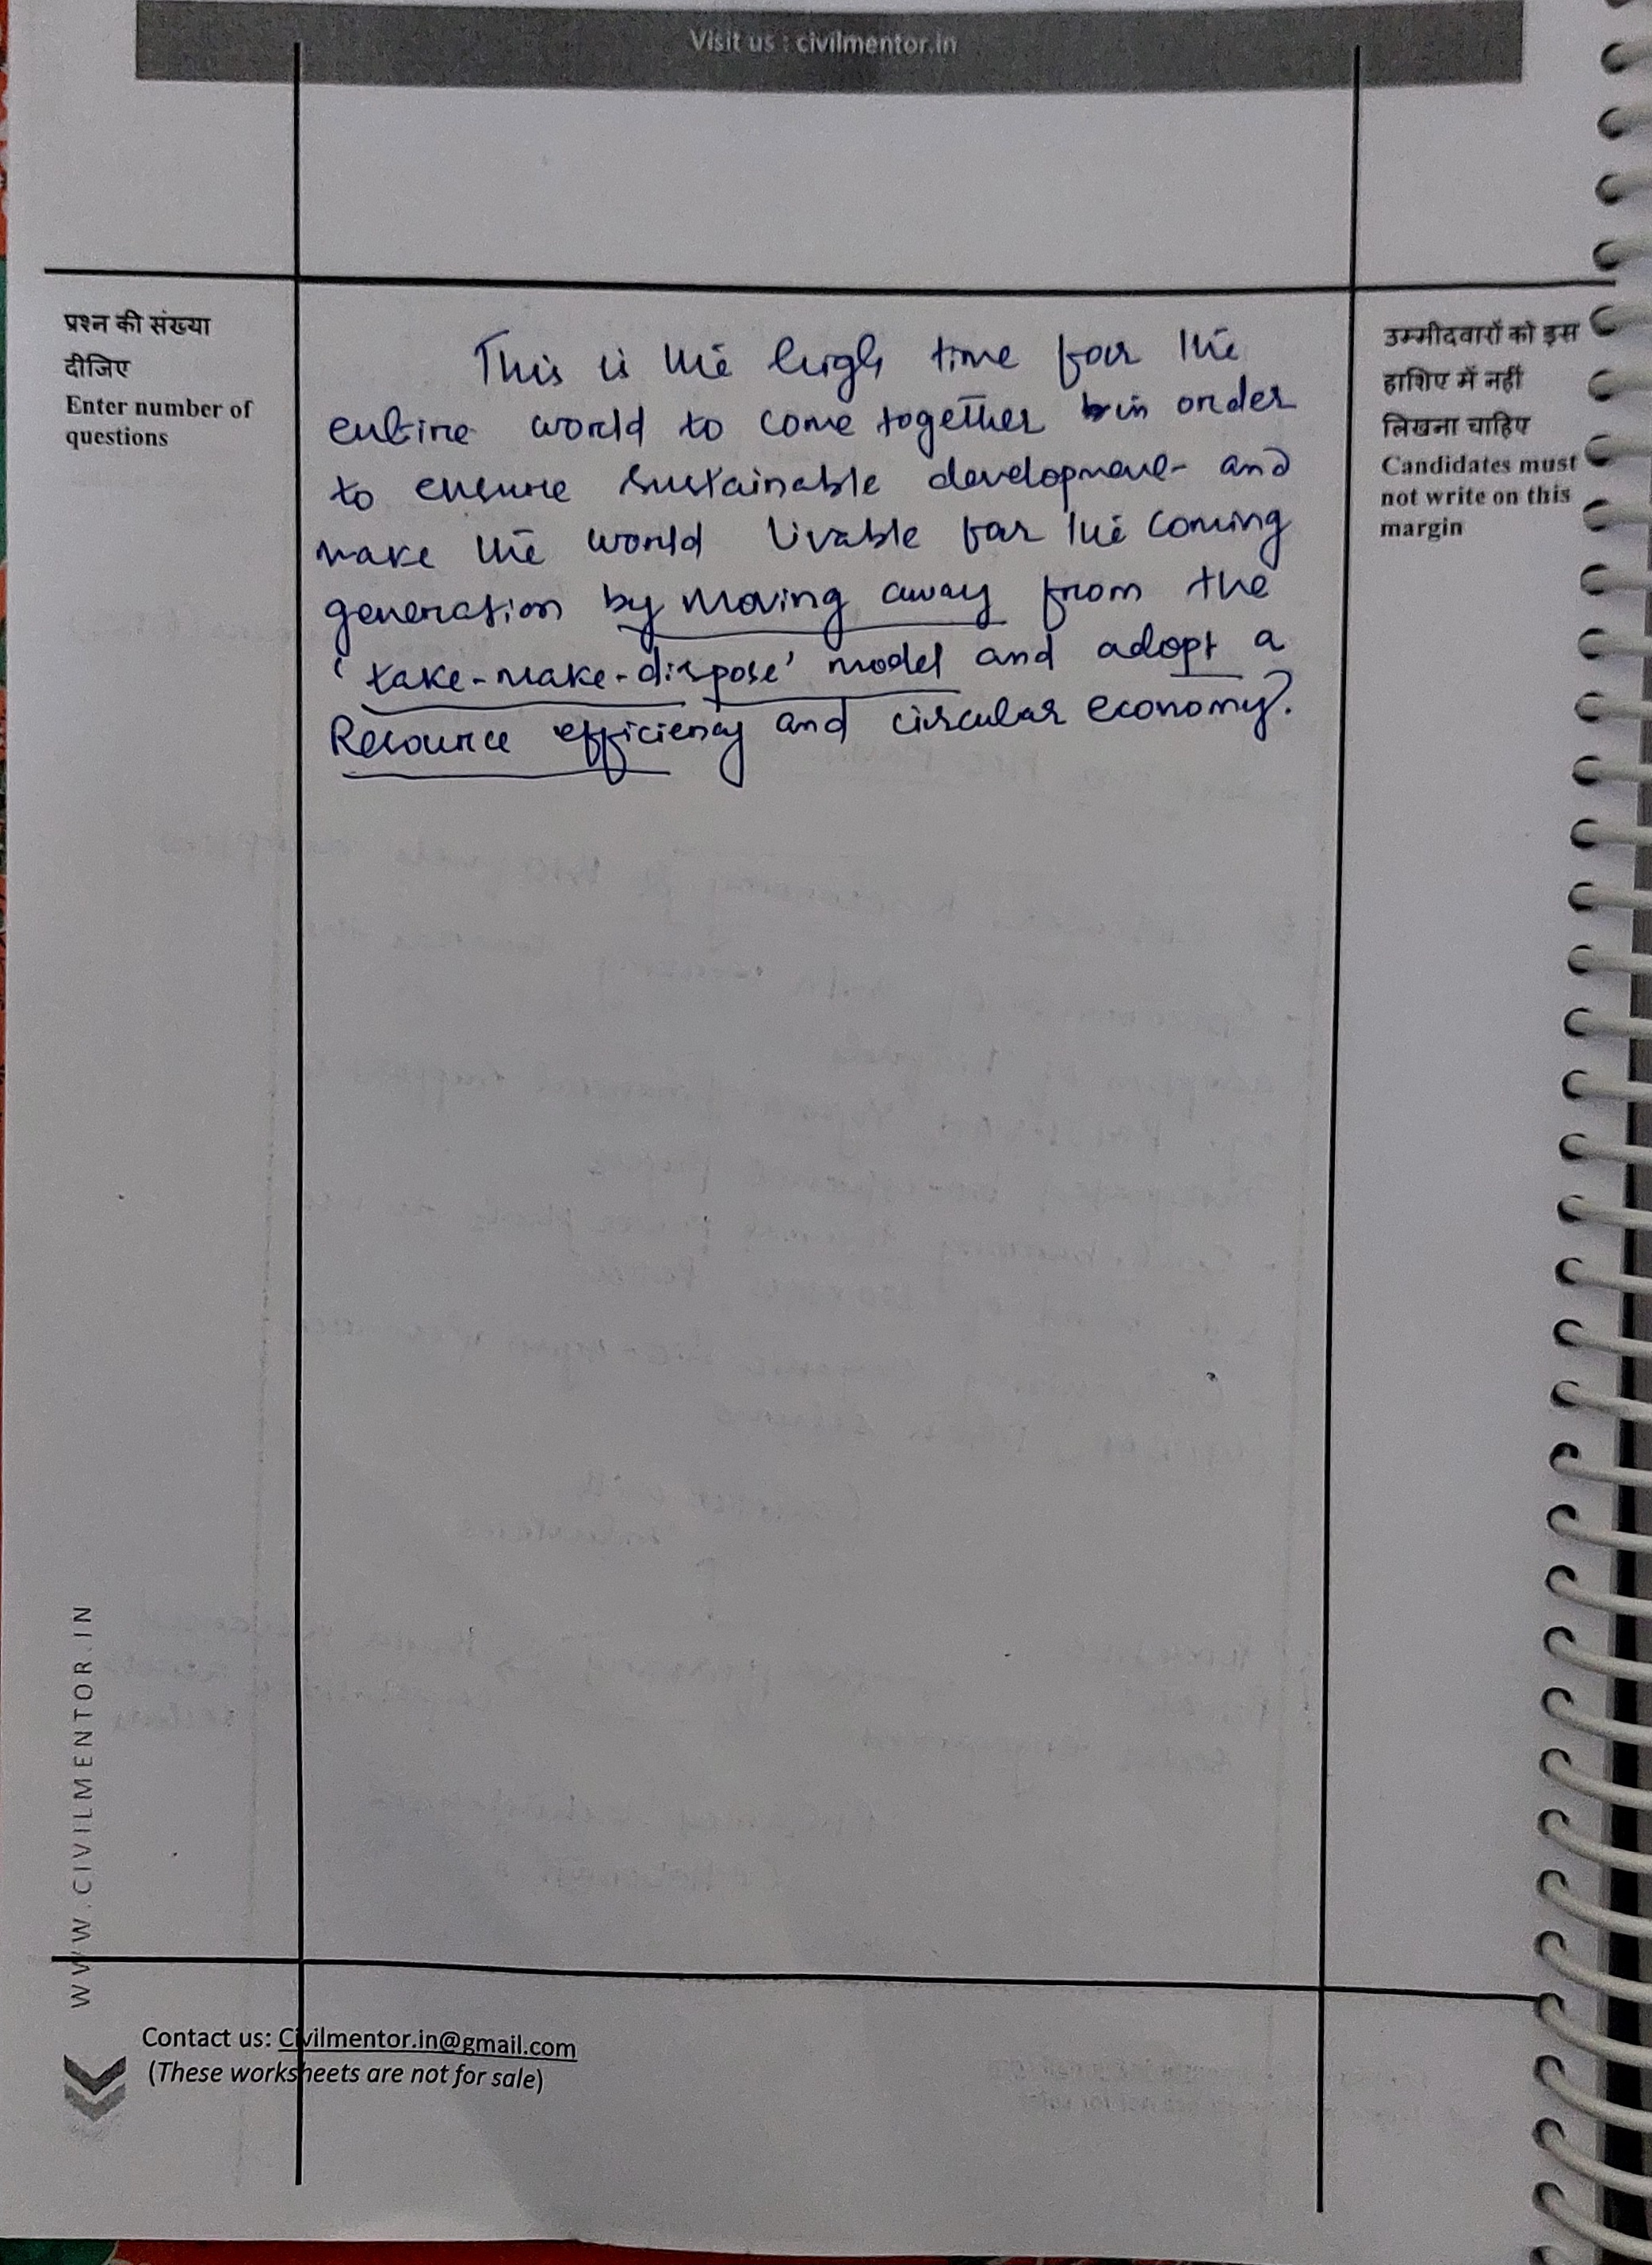 Visit us : civilmentor.in
प्रश्न की संख्या
दीजिए
Enter number of
questions
This is the high time for the
entire world to come together in order
to ensure sustainable development and
make the world livable for the coming
generation by moving away from the
'take-make-dispose' model and adopt a
Resource efficiency and circular economy?
उम्मीदवारों को इस
हाशिए में नहीं
लिखना चाहिए
Candidates must
not write on this
margin
WWW.CIVILMENTOR.IN
Contact us: Civilmentor.in@gmail.com
(These worksheets are not for sale)